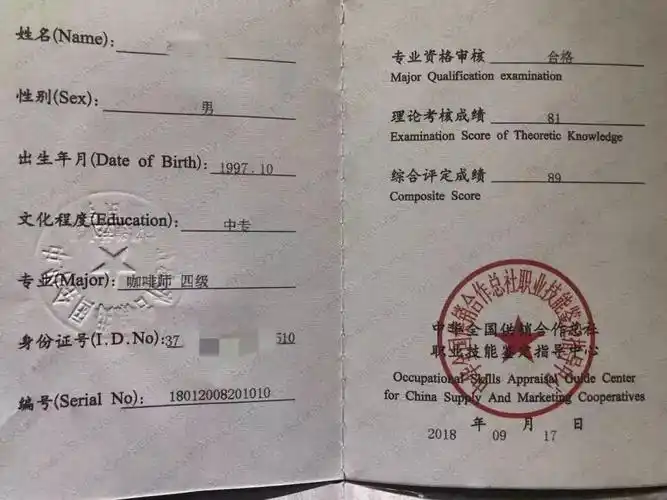 姓名(Name):
性别(Sex): 男
出生年月(Date of Birth): 1997.10
文化程度(Education): 中专
专业(Major): 咖啡师 四级
身份证号(I.D.No):37 510
编号(Serial No): 18012008201010
专业资格审核 合格
Major Qualification examination
理论考核成绩 81
Examination Score of Theoretic Knowledge
综合评定成绩 89
Composite Score
中华全国供销合作总社
职业技能鉴定指导中心
Occupational Skills Appraisal Guide Center
for China Supply And Marketing Cooperatives
年 月 日
2018 09 17